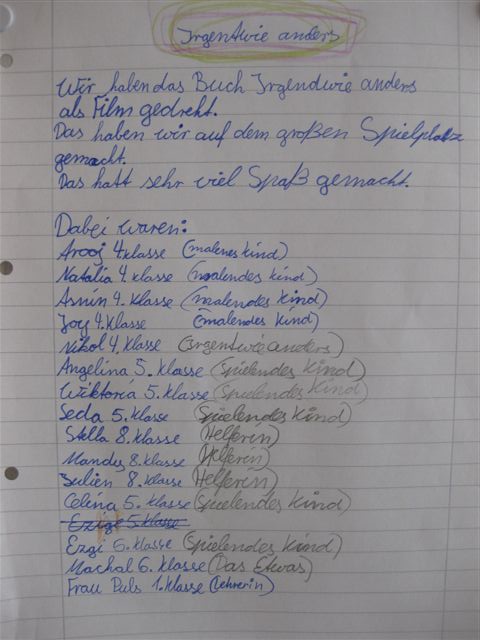 Irgentwie anders
Wir haben das Buch Irgendwie anders
als Film gedreht.
Das haben wir auf dem großen Spielplatz
gemacht.
Das hatt sehr viel Spaß gemacht.
Dabei waren:
Arooj 4.Klasse (malenes Kind)
Natalia 4. Klasse (malendes Kind)
Armin 4. Klasse (malendes Kind)
Joy 4. Klasse (malendes Kind)
Nikol 4. Klasse (irgentwie anders)
Angelina 5. Klasse (Spielendes Kind)
Wiktoria 5. Klasse (Spielendes Kind)
Seda 5. Klasse (Spielendes Kind)
Stella 8. Klasse (Helferin)
Mandy 8. Klasse (Helferin)
Julien 8. Klasse (Helferin)
Celina 5. Klasse (Spielendes Kind)
Ezigi 5 Klasse
Ezgi 6. Klasse (Spielendes Kind)
Machal 6. Klasse (Das Etwas)
Frau Puls 1. Klasse (Lehrerin)